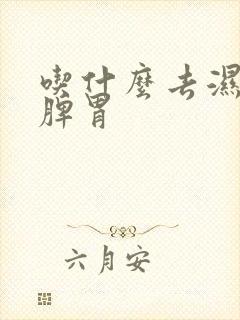 喫什麼去濕
脾胃
六月安